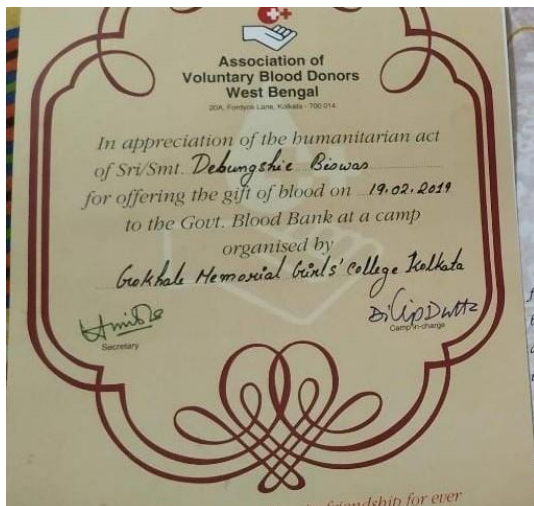 Association of
Voluntary Blood Donors
West Bengal
20A, Fordyce Lane, Kolkata - 700 014.
In appreciation of the humanitarian act
of Sri/Smt. Debungshie Biswas
for offering the gift of blood on 19.02.2019
to the Govt. Blood Bank at a camp
organised by
Gokhale Memorial Girls' College Kolkata
Dilip Dutta
Secretary
Camp in-charge
friendship for ever